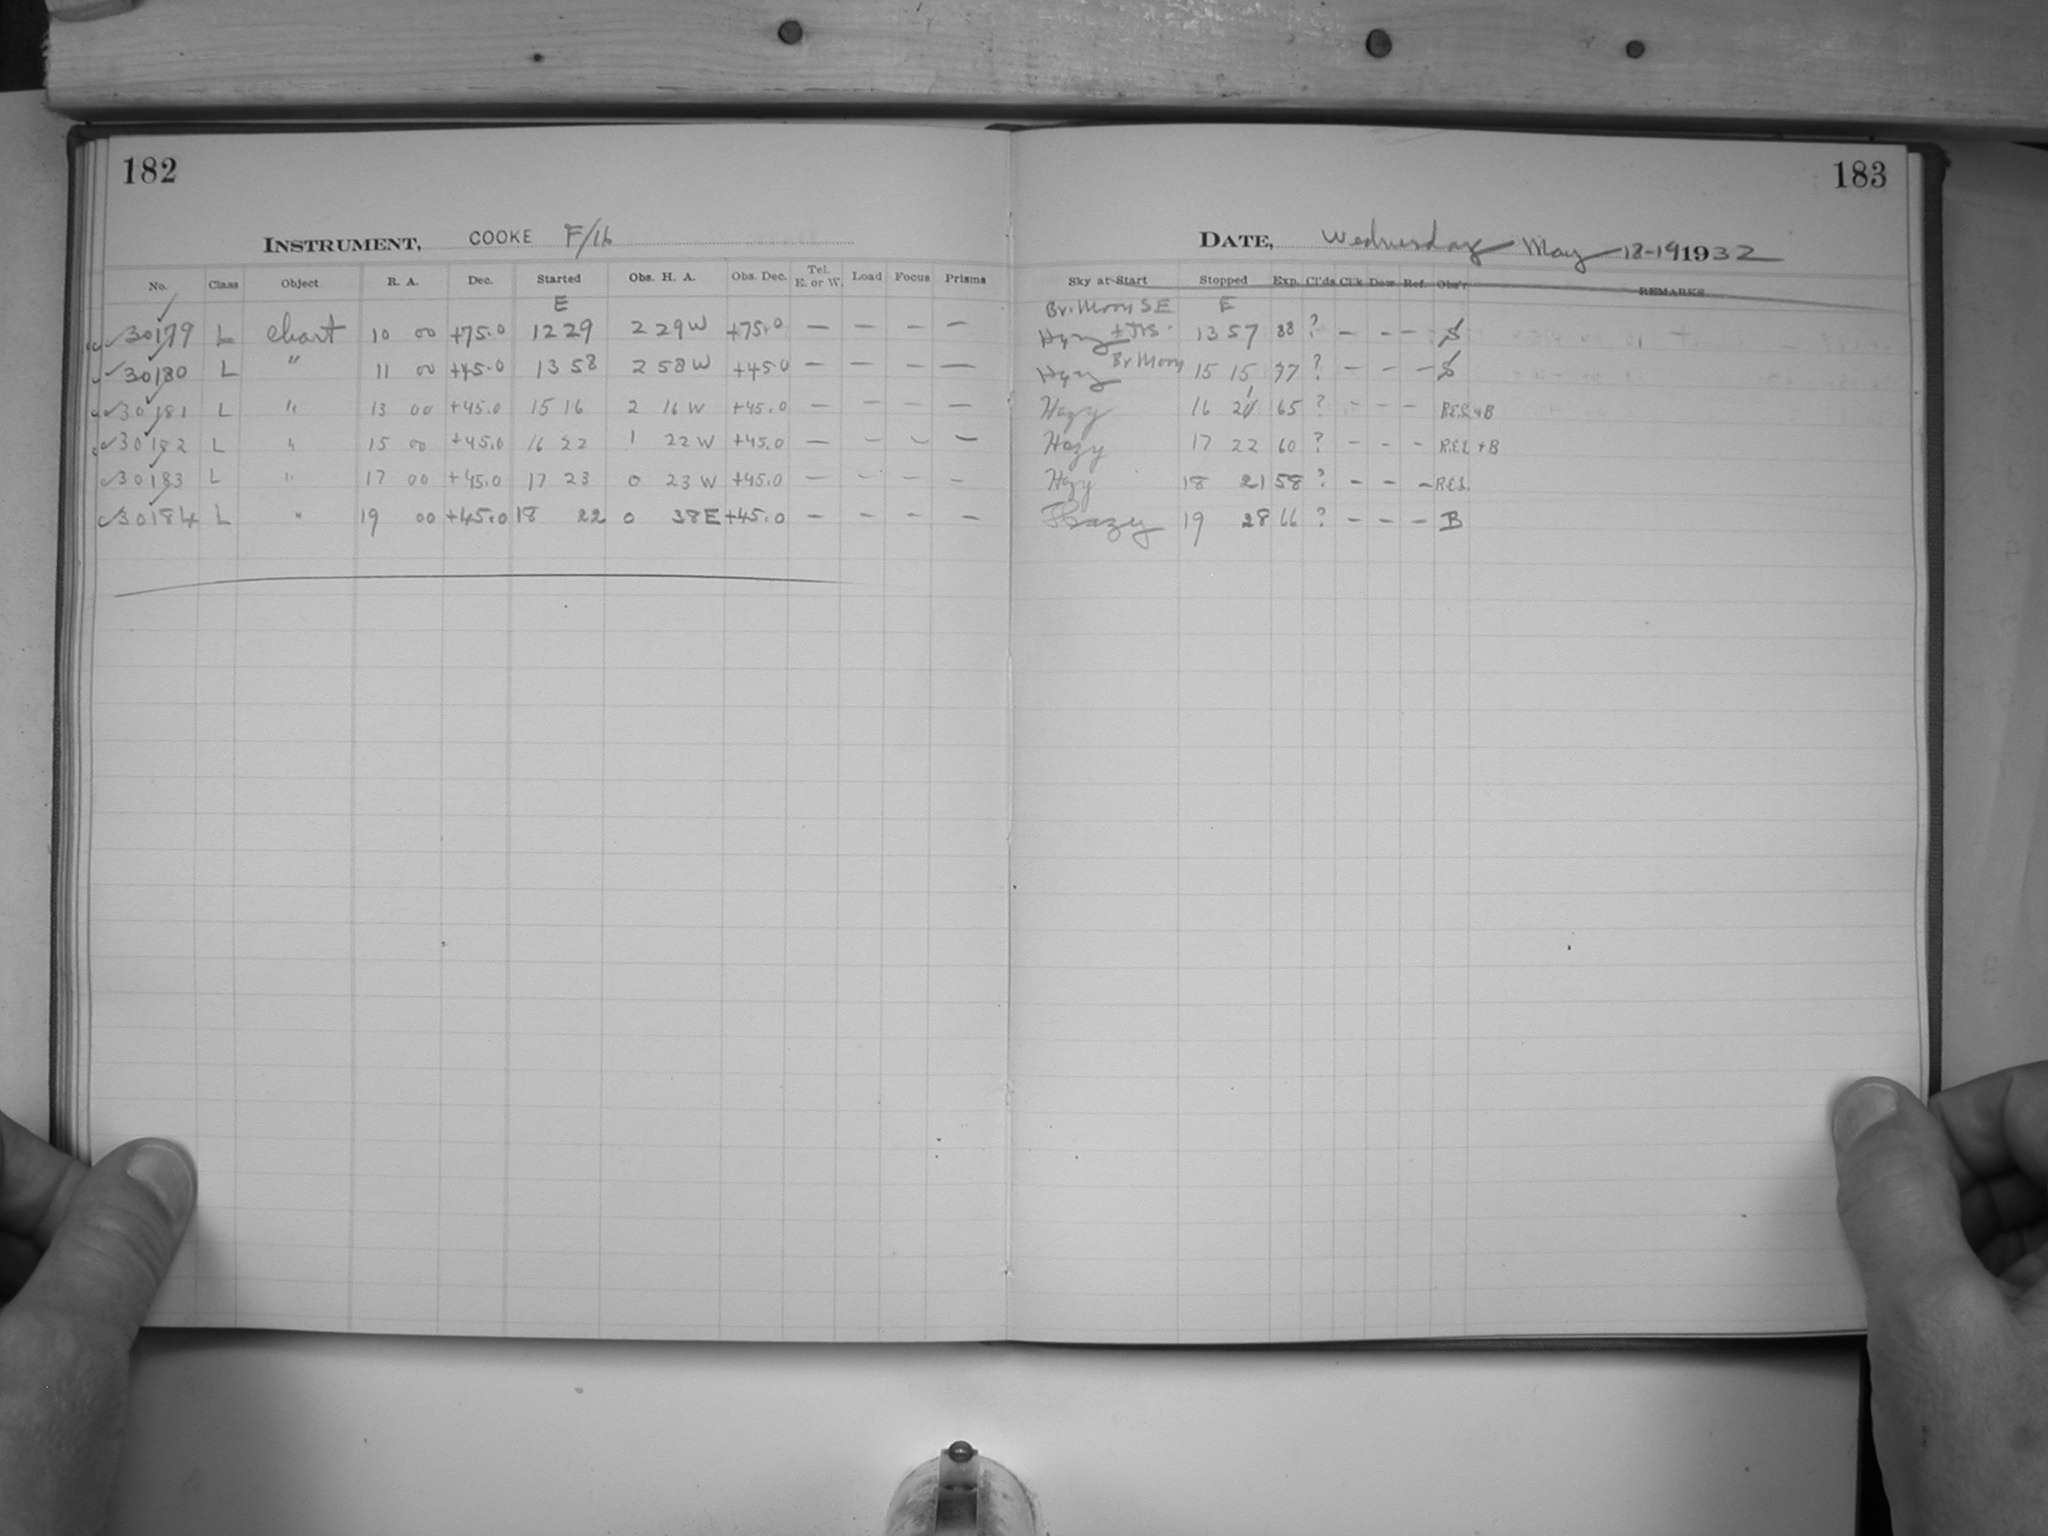 182
INSTRUMENT, COOKE F/16
No. Class Object R. A. Dec. Started Obs. H. A. Obs. Dec. Tel. E. or W. Load Focus Prisms
E
30179 L Chart 10 00 +75.0 12 29 2 29 W +75.0 — — — —
30180 L " 11 00 +45.0 13 58 2 58 W +45.0 — — — —
30181 L " 13 00 +45.0 15 16 2 16 W +45.0 — — — —
30182 L " 15 00 +45.0 16 22 1 22 W +45.0 — — — —
30183 L " 17 00 +45.0 17 23 0 23 W +45.0 — — — —
30184 L " 19 00 +45.0 18 22 0 38 E +45.0 — — — —
183
DATE, Wednesday May 18-19 1932
Sky at Start Stopped Exp. Cl'ds Cl'k Dew Ref. Obs'r REMARKS
Br. Moon SE E
Hazy 13 57 88 ? — — — S
Hazy Br Moon 15 15 77 ? — — — S
Hazy 16 21 65 ? — — — R.E.S. + B
Hazy 17 22 60 ? — — — R.E.S. + B
Hazy 18 21 58 ? — — — R.E.S.
Hazy 19 28 66 ? — — — B